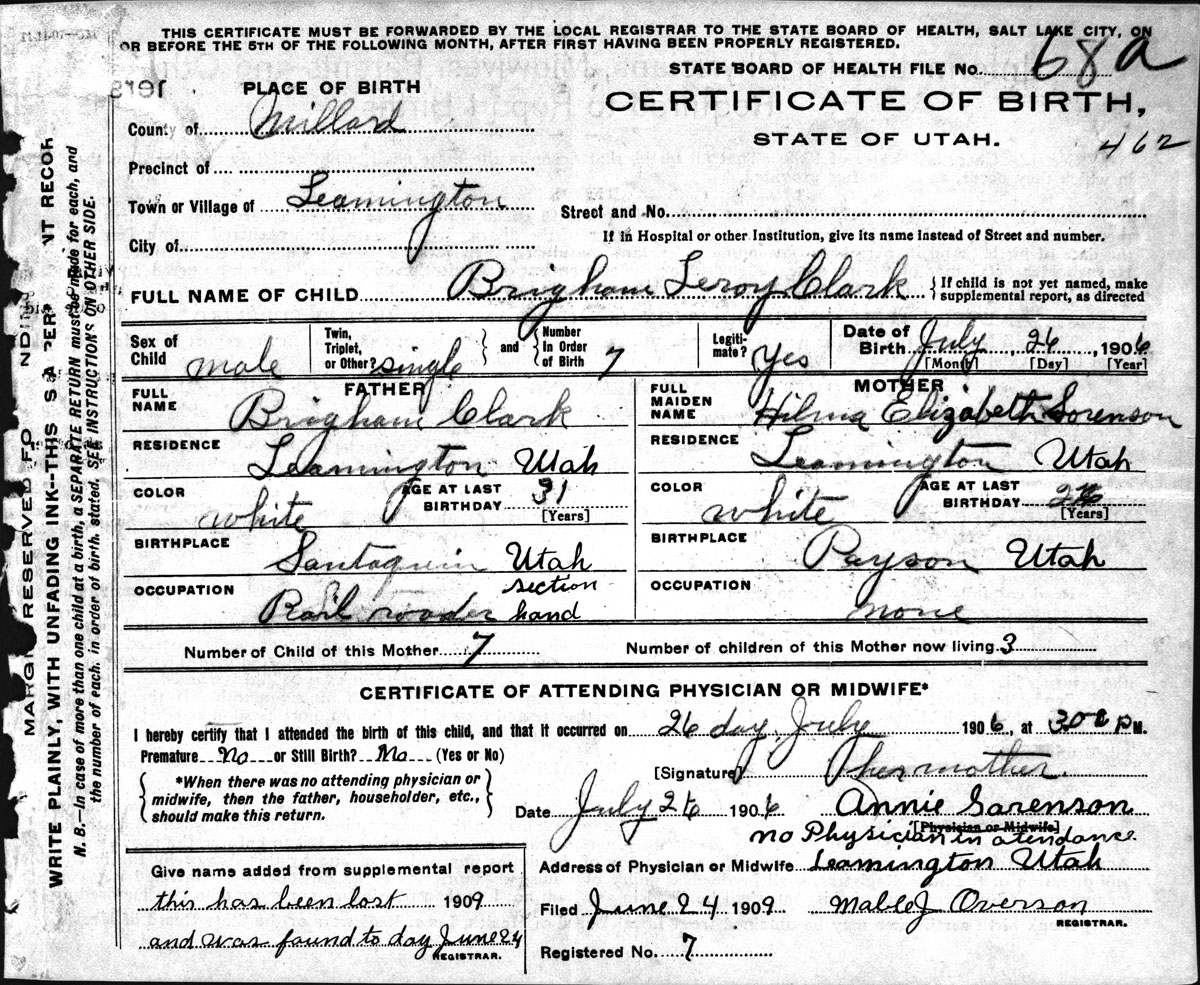 THIS CERTIFICATE MUST BE FORWARDED BY THE LOCAL REGISTRAR TO THE STATE BOARD OF HEALTH, SALT LAKE CITY, ON
OR BEFORE THE 5TH OF THE FOLLOWING MONTH, AFTER FIRST HAVING BEEN PROPERLY REGISTERED.
STATE BOARD OF HEALTH FILE No. 68a
PLACE OF BIRTH
CERTIFICATE OF BIRTH,
County of Millard
STATE OF UTAH.
462
Precinct of
Town or Village of Leamington
Street and No.
City of
If in Hospital or other Institution, give its name instead of Street and number.
FULL NAME OF CHILD Brigham Leroy Clark { If child is not yet named, make supplemental report, as directed
Sex of Child male Twin, Triplet, or Other? single } and { Number In Order of Birth 7 Legiti-mate? Yes Date of Birth July, 26, 1906
[Month] [Day] [Year]
FATHER MOTHER
FULL NAME Brigham Clark FULL MAIDEN NAME Hilma Elizabeth Sorenson
RESIDENCE Leamington Utah RESIDENCE Leamington Utah
COLOR white AGE AT LAST BIRTHDAY 31 [Years] COLOR white AGE AT LAST BIRTHDAY [Years]
BIRTHPLACE Santaquin Utah BIRTHPLACE Payson Utah
OCCUPATION Rail roader section hand OCCUPATION none
Number of Child of this Mother 7 Number of children of this Mother now living 3
CERTIFICATE OF ATTENDING PHYSICIAN OR MIDWIFE*
I hereby certify that I attended the birth of this child, and that it occurred on 26 day July 1906, at 3.00 P M.
Premature No or Still Birth? No (Yes or No)
[Signature] her mother
{ *When there was no attending physician or midwife, then the father, householder, etc., should make this return. }
Date July 26 1906 Annie Sorenson
[Physician or Midwife]
no Physician in atendance
Address of Physician or Midwife Leamington Utah
Give name added from supplemental report
this has been lost 1909
Filed June 24 1909 Mable J Overson
REGISTRAR.
and was found to day June 24
REGISTRAR.
Registered No. 7
MARGIN RESERVED FO NDING
WRITE PLAINLY, WITH UNFADING INK--THIS S A PER NT RECOR
N. B.--In case of more than one child at a birth, a SEPARATE RETURN must be made for each, and
the number of each, in order of birth stated. SEE INSTRUCTIONS ON OTHER SIDE.